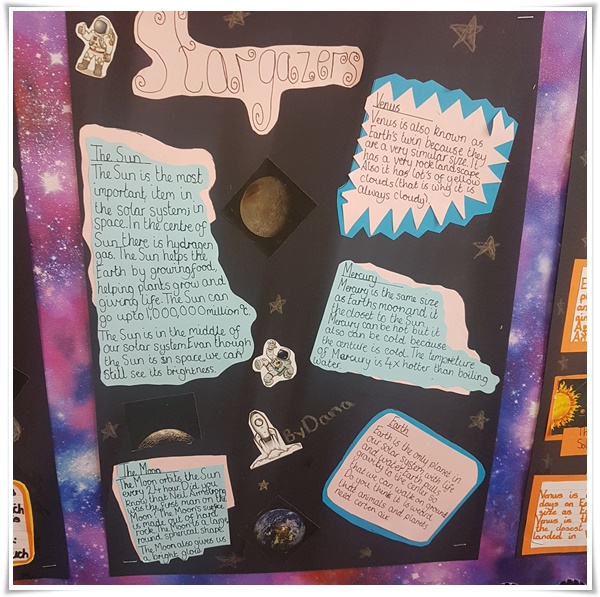 Stargazers
The Sun
The Sun is the most
important item in
the solar system; in
space. In the centre of
Sun there is hydrogen
gas. The Sun helps the
Earth by growing food,
helping plants grow and
giving life. The Sun can
go up to 1,000,000 million °C.
The Sun is in the middle of
our solar system. Evan though
the Sun is in space we can
still see its brightness.
The Moon
The Moon orbits the Sun
every 24 hour. Did you
know that Neil Armstrong
was the first man on the
Moon? The Moon's surface
is made out of hard
rock. It also has a large
round, spherical shape.
The Moon also gives us
a bright glow
Venus
Venus is also known as
Earth's twin because they
are a very simular size. It
has a very rocky landscape.
Also it has lot's of yellow
clouds (that is why it is
always cloudy).
Mercury
Mercury is the same size
as Earths moon and it
the closet to the Sun.
Mercury can be hot but it
also can be cold because
the centure is cold. The tempreture
of Mercury is 4x hotter than boiling
water.
By Dana
Earth
Earth is the only planet in
our solar system with life
and water. Earth pulls
gravity at the center so
that we can walk on ground
Do you think it is weird
that animals and planets
need certian air
Venus is
days on Ea
size as
Venus is th
the closest
landed in